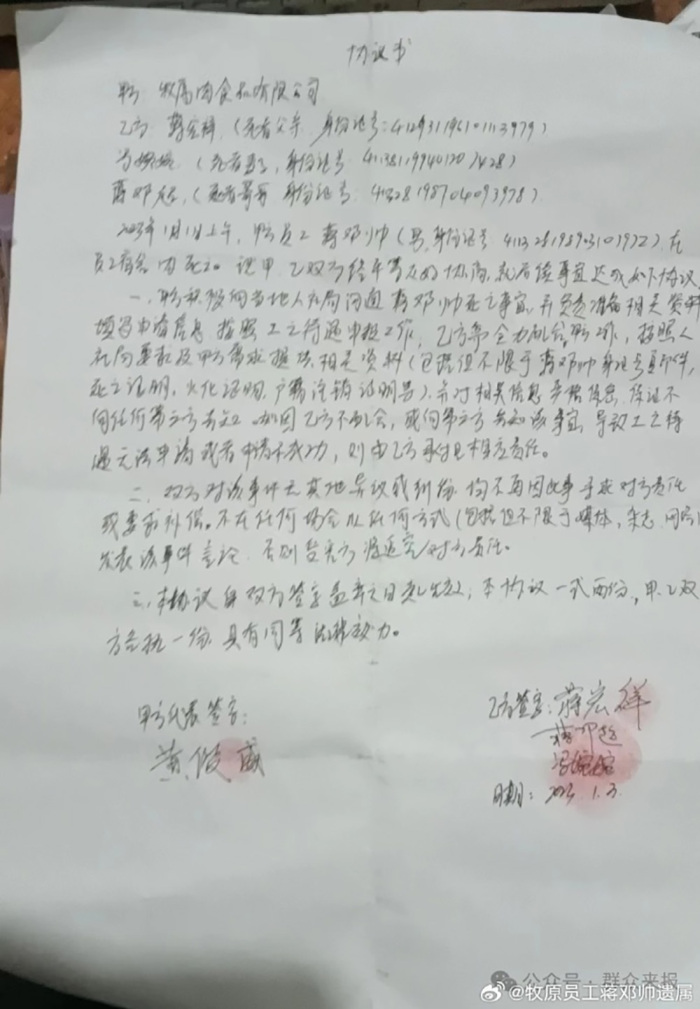 协议书
甲方：牧原肉食品有限公司
乙方：蒋宏祥（死者父亲，身份证号：
（死者妻子，身份证号：
蒋邓超，（死者哥哥，身份证号：
2023年1月1日上午，甲方员工蒋邓帅（男，身份证号：），在
员工宿舍内死亡。误甲、乙双方经平等友好协商，就后续事宜达成如下协议
一、甲方积极向当地人社局沟通蒋邓帅死亡事宜，并负责准备相关资料
填写申请信息，按照工亡待遇申报工作，乙方需全力配合甲方工作，按照人
社局要求及甲方需求提供相关资料（包括但不限于蒋邓帅身份证复印件，
死亡证明，火化证明，户籍注销证明等），并对相关信息严格保密，保证不
向任何第三方告知。如因乙方不配合，或向第三方告知该事宜，导致工亡待
遇无法申请或者申请不成功，则由乙方承担相应责任。
二、双方对该事件无其他异议或纠纷，均不再因此事寻求对方责任
或要求补偿。不在任何场合以任何方式（包括但不限于媒体，杂志，网络）
发表该事件言论，否则会追究对方责任。
三、本协议自双方签字盖章之日起生效，本协议一式两份，甲、乙双
方各执一份，具有同等法律效力。
甲方代表签字：
黄俊威
乙方签字：蒋宏祥
蒋邓超
日期：2023.1.3.
公众号·群众来报
@牧原员工蒋邓帅遗属